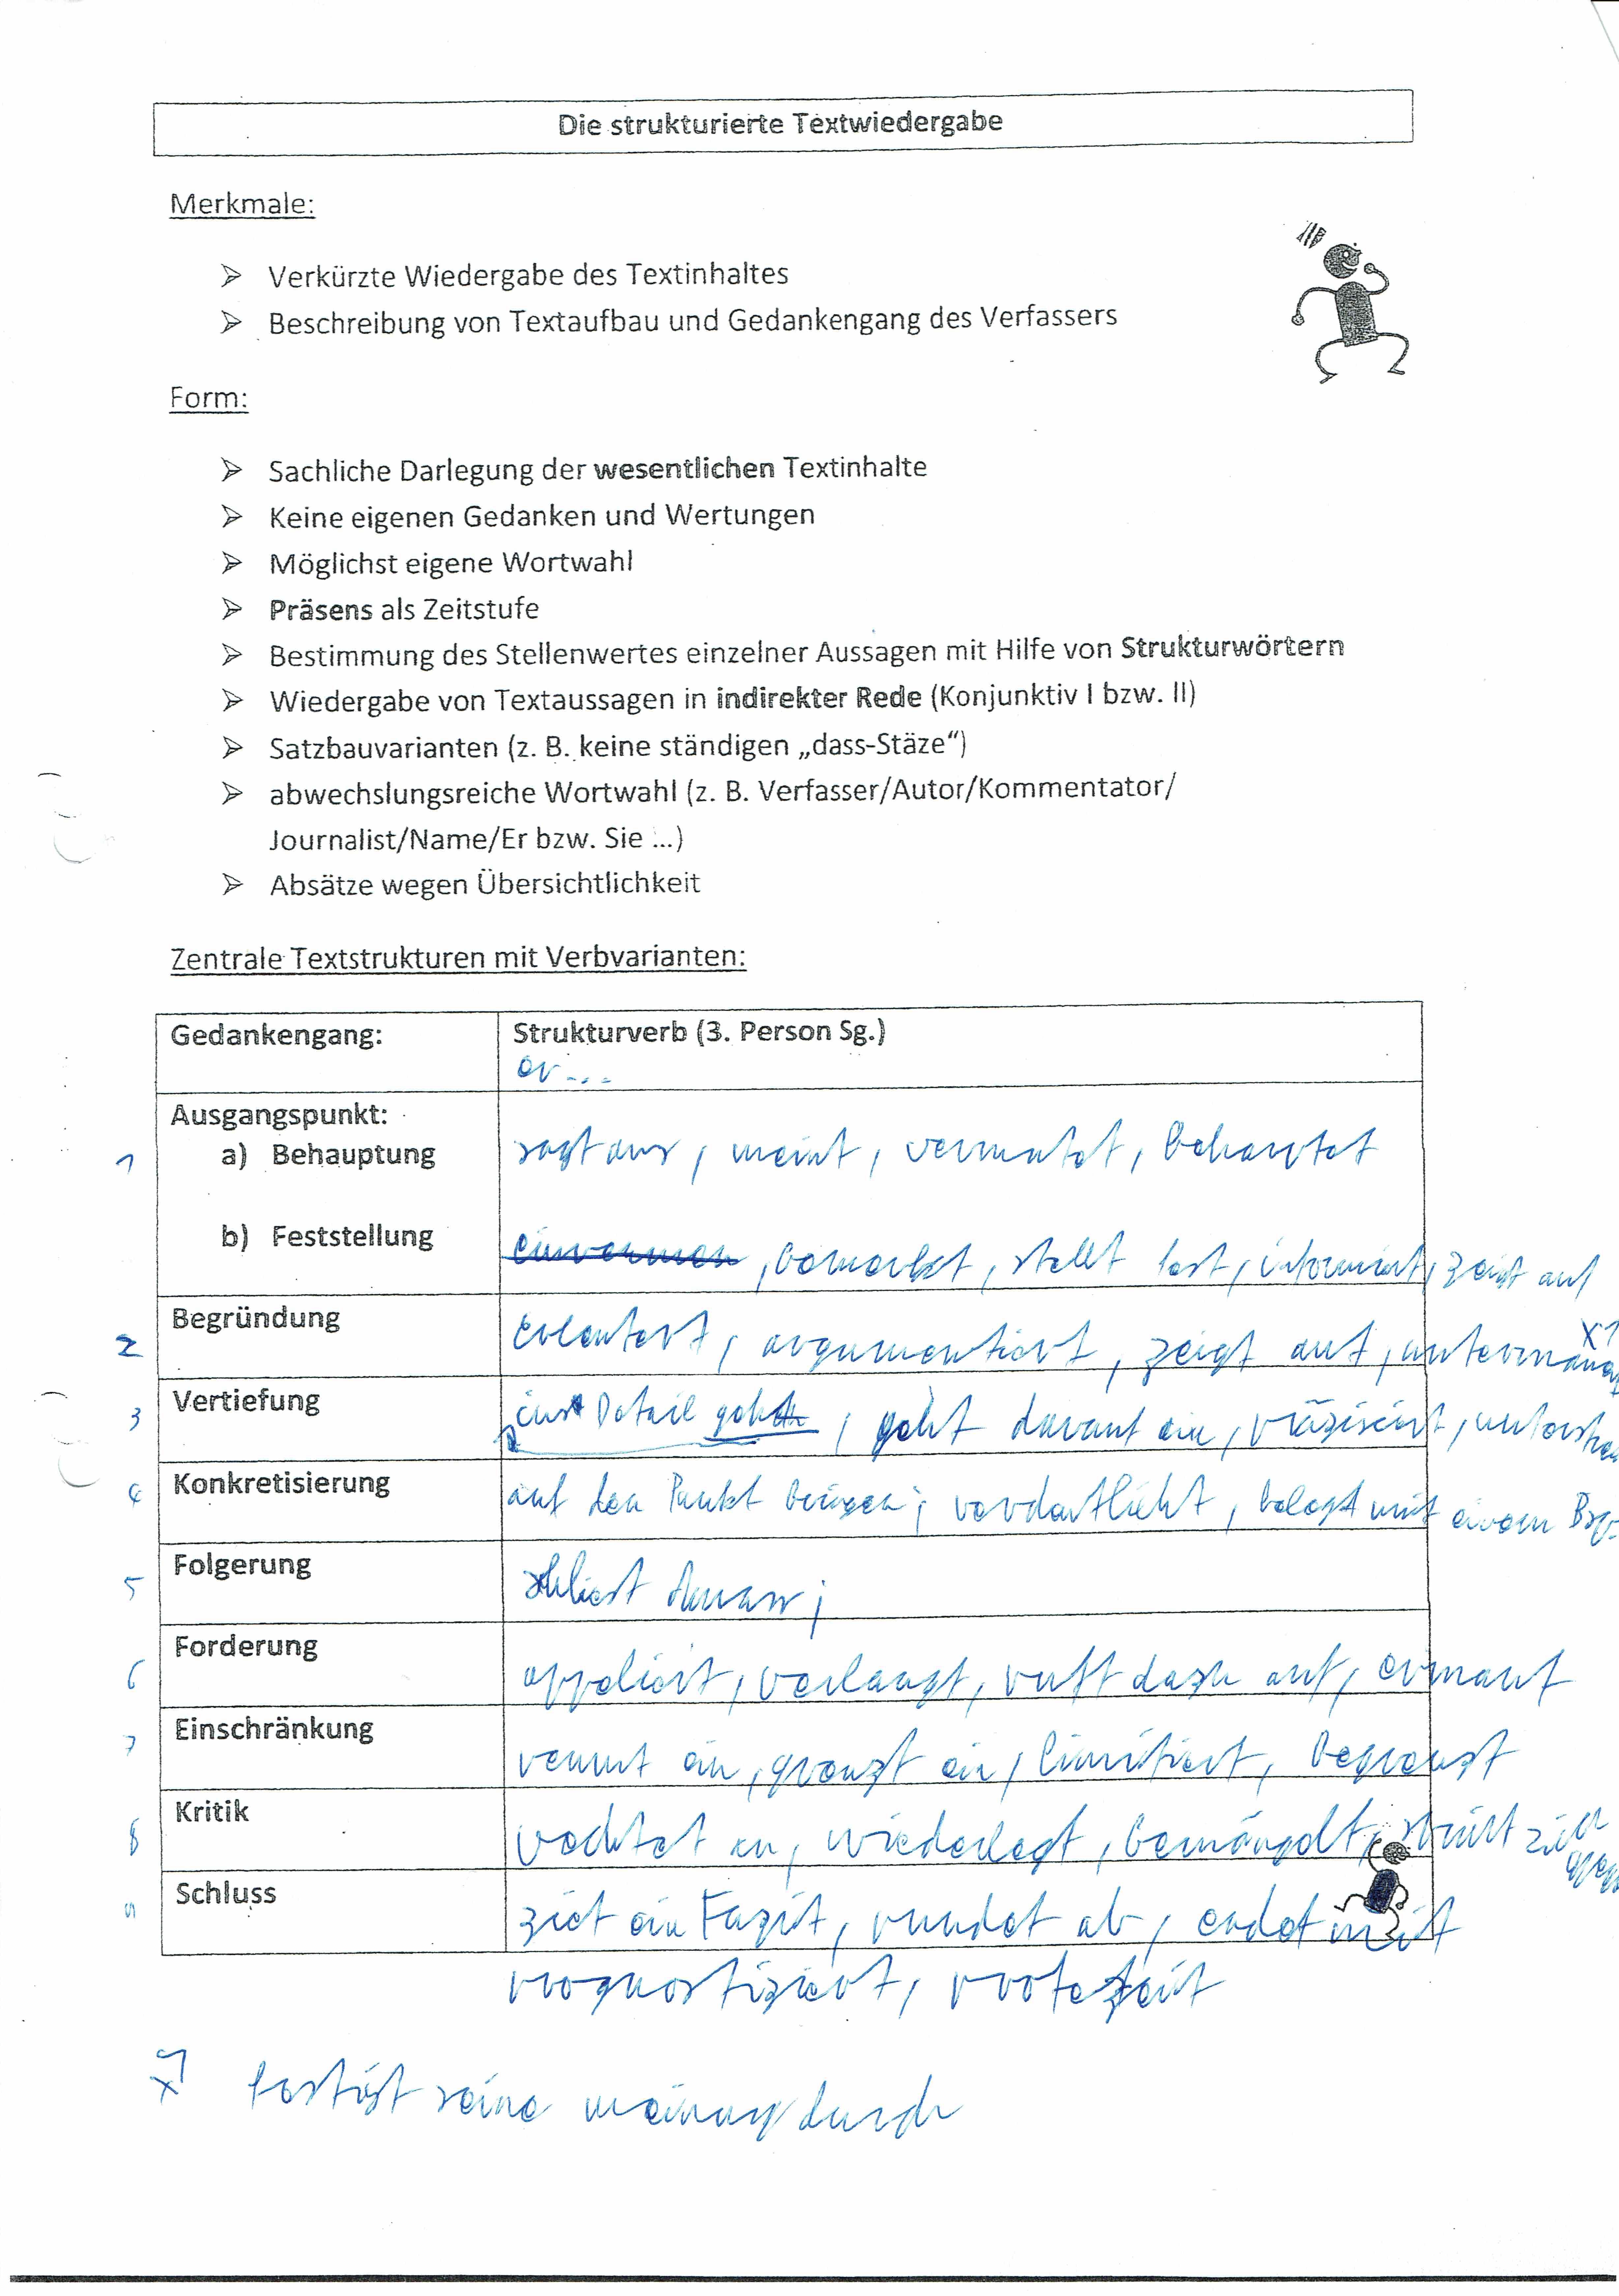 Die strukturierte Textwiedergabe
Merkmale:
Verkürzte Wiedergabe des Textinhaltes
Beschreibung von Textaufbau und Gedankengang des Verfassers
Form:
Sachliche Darlegung der wesentlichen Textinhalte
Keine eigenen Gedanken und Wertungen
Möglichst eigene Wortwahl
Präsens als Zeitstufe
Bestimmung des Stellenwertes einzelner Aussagen mit Hilfe von Strukturwörtern
Wiedergabe von Textaussagen in indirekter Rede (Konjunktiv I bzw. II)
Satzbauvarianten (z. B. keine ständigen „dass-Stäze“)
abwechslungsreiche Wortwahl (z. B. Verfasser/Autor/Kommentator/
Journalist/Name/Er bzw. Sie ...)
Absätze wegen Übersichtlichkeit
Zentrale Textstrukturen mit Verbvarianten:
Gedankengang: Strukturverb (3. Person Sg.)
er ...
Ausgangspunkt:
1 a) Behauptung sagt aus, meint, vermutet, behauptet
b) Feststellung , bemerkt, stellt fest, informiert, zeigt auf
2 Begründung erleutert, argumentiert, zeigt auf,
3 Vertiefung ins Detail geht, geht darauf ein, präzisiert,
4 Konkretisierung auf den Punkt bringen; verdeutlicht, belegt mit einem Bsp.
5 Folgerung schliest daraus;
6 Forderung appeliert, verlangt, ruft dazu auf,
7 Einschränkung räumt ein, grenzt ein, limitiert, begrenzt
8 Kritik an, wiederlegt, bemängelt, sich
9 Schluss ziet ein Fazit, rundet ab, endet mit
prognostiziert, profezeit
festigt seine meinung durch